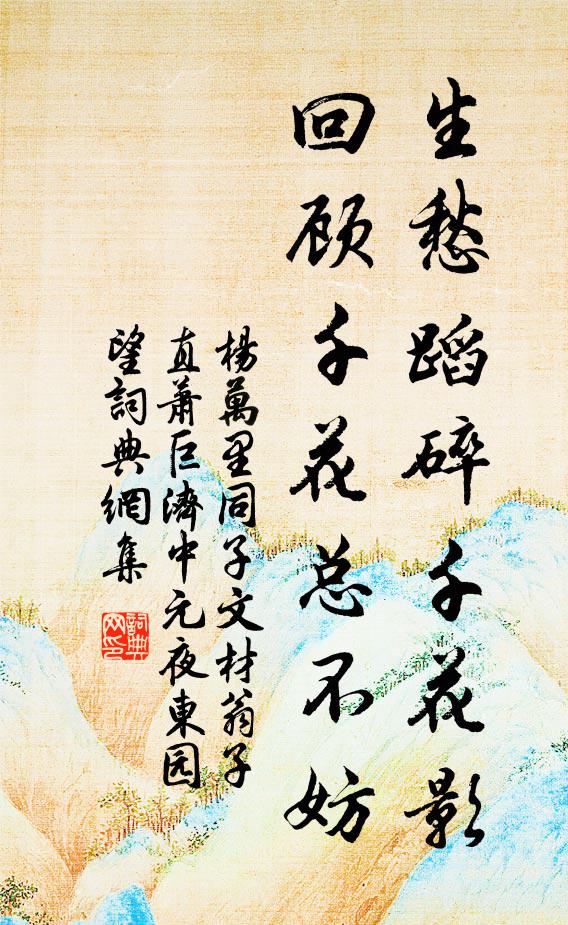 生愁蹈碎千花影
回顾千花总不妨
杨萬里同子文材翁子
直萧巨濟中元夜東园
望詞典網集
詞典
网印